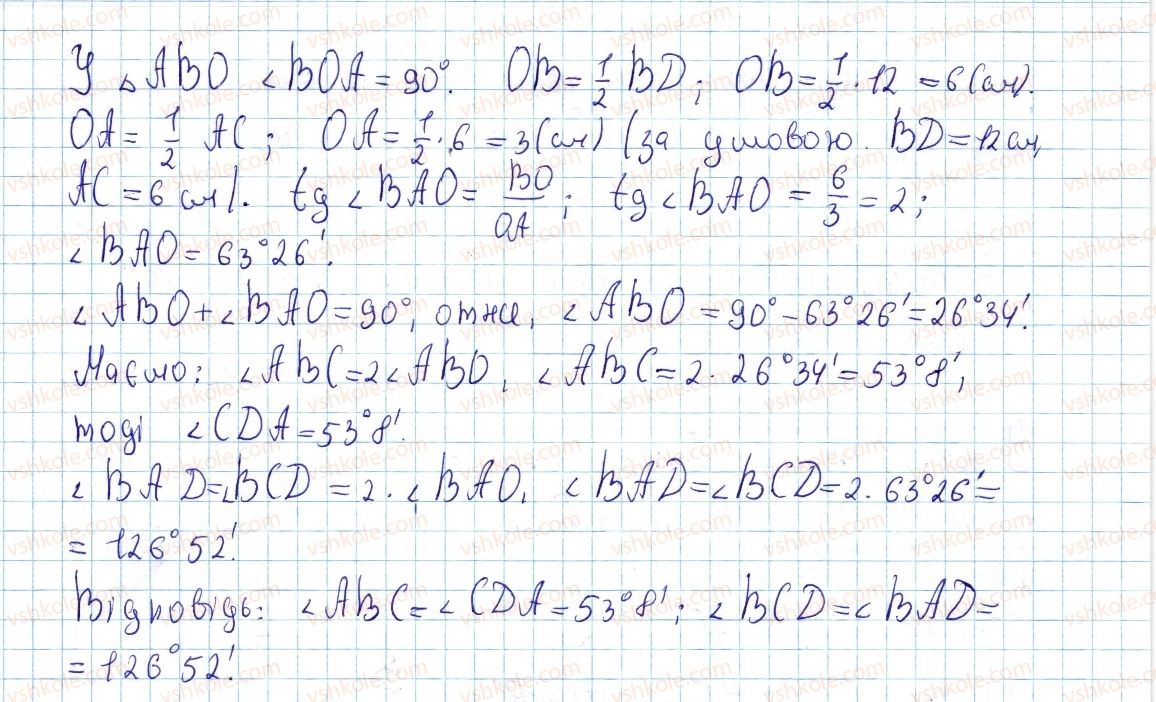 У △ABO ∠BOA = 90°. OB = 1/2 BD; OB = 1/2 · 12 = 6 (см).
OA = 1/2 AC; OA = 1/2 · 6 = 3 (см) (за умовою BD = 12 см,
AC = 6 см). tg ∠BAO = BO/OA; tg ∠BAO = 6/3 = 2;
∠BAO = 63°26'.
∠ABO + ∠BAO = 90°, отже, ∠ABO = 90° – 63°26' = 26°34'.
Маємо: ∠ABC = 2∠ABO, ∠ABC = 2 · 26°34' = 53°8',
тоді ∠CDA = 53°8'.
∠BAD = ∠BCD = 2 · ∠BAO, ∠BAD = ∠BCD = 2 · 63°26' =
= 126°52'.
Відповідь: ∠ABC = ∠CDA = 53°8'; ∠BCD = ∠BAD =
= 126°52'.
vshkole.com